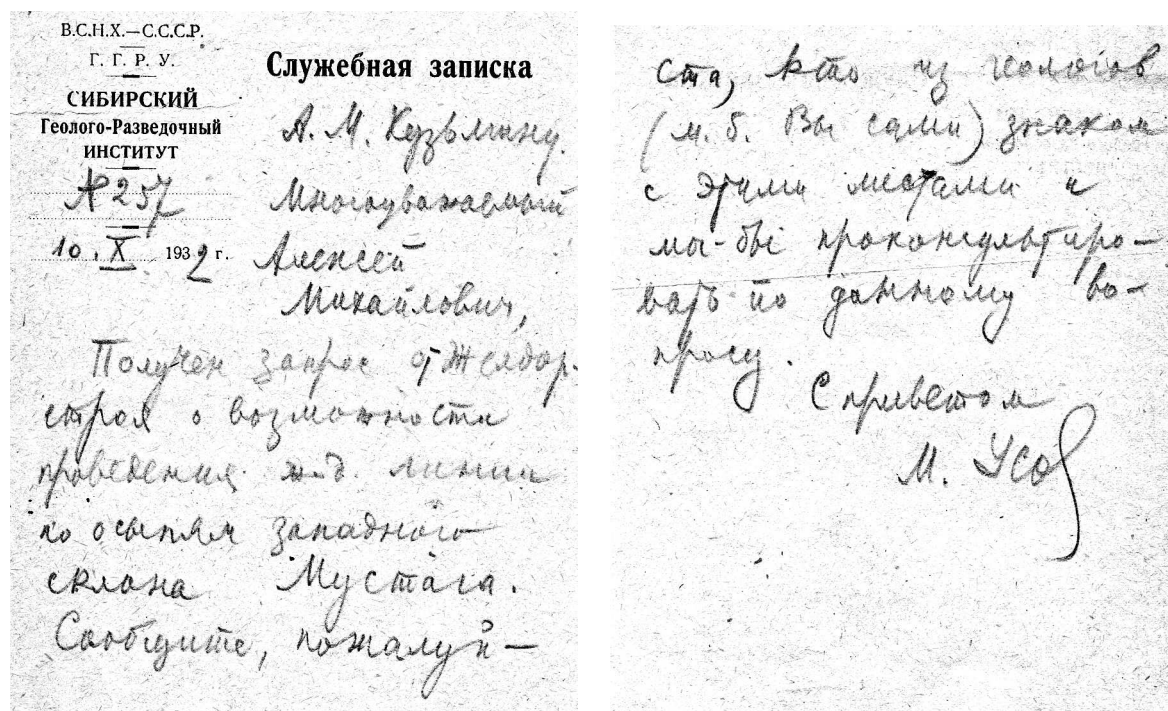 В.С.Н.Х.—С.С.С.Р.
Г. Г. Р. У.
СИБИРСКИЙ
Геолого-Разведочный
ИНСТИТУТ
№ 257
10. X 1932 г.
Служебная записка
А. М. Кузьмину.
Многоуважаемый
Алексей
Михайлович,
Получен запрос от Желдор-
строя о возможности
проведения ж.д. линии
по осыпям западного
склона Мустага.
Сообщите, пожалуй—
ста, кто из геологов
(м. б. Вы сами) знаком
с этими местами и
мог бы проконсультиро—
вать по данному во—
просу.
С приветом
М. Усов